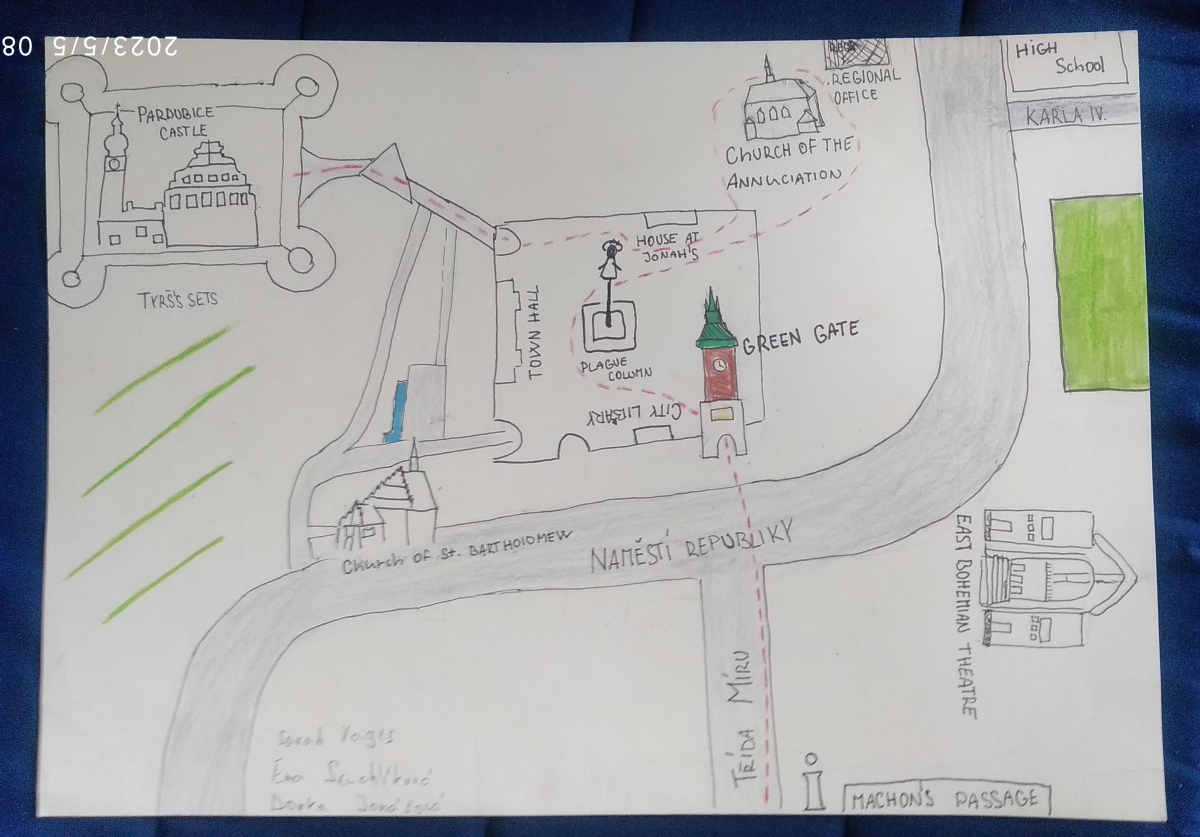 2023/5/5 08
HIGH
School
KARLA IV.
REGIONAL
OFFICE
CHURCH OF THE
ANNUCIATION
PARDUBICE
CASTLE
TYRŠ'S SETS
HOUSE AT
JONAH'S
TOWN HALL
PLAGUE
COLUMN
GREEN GATE
CITY LIBSARY
Church of St. BARTHOLOMEW
NAMĚSTÍ REPUBLIKY
EAST BOHEMIAN THEATRE
TŘÍDA MÍRU
MACHON'S PASSAGE
Sarah
Ema